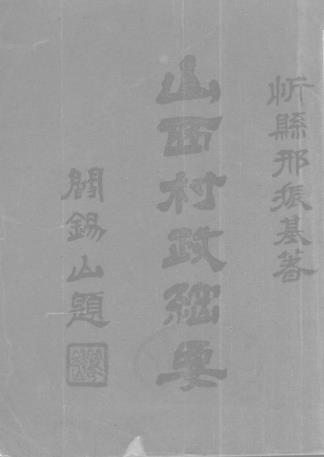 忻縣邢振基著
山西村政綱要
閻錫山題